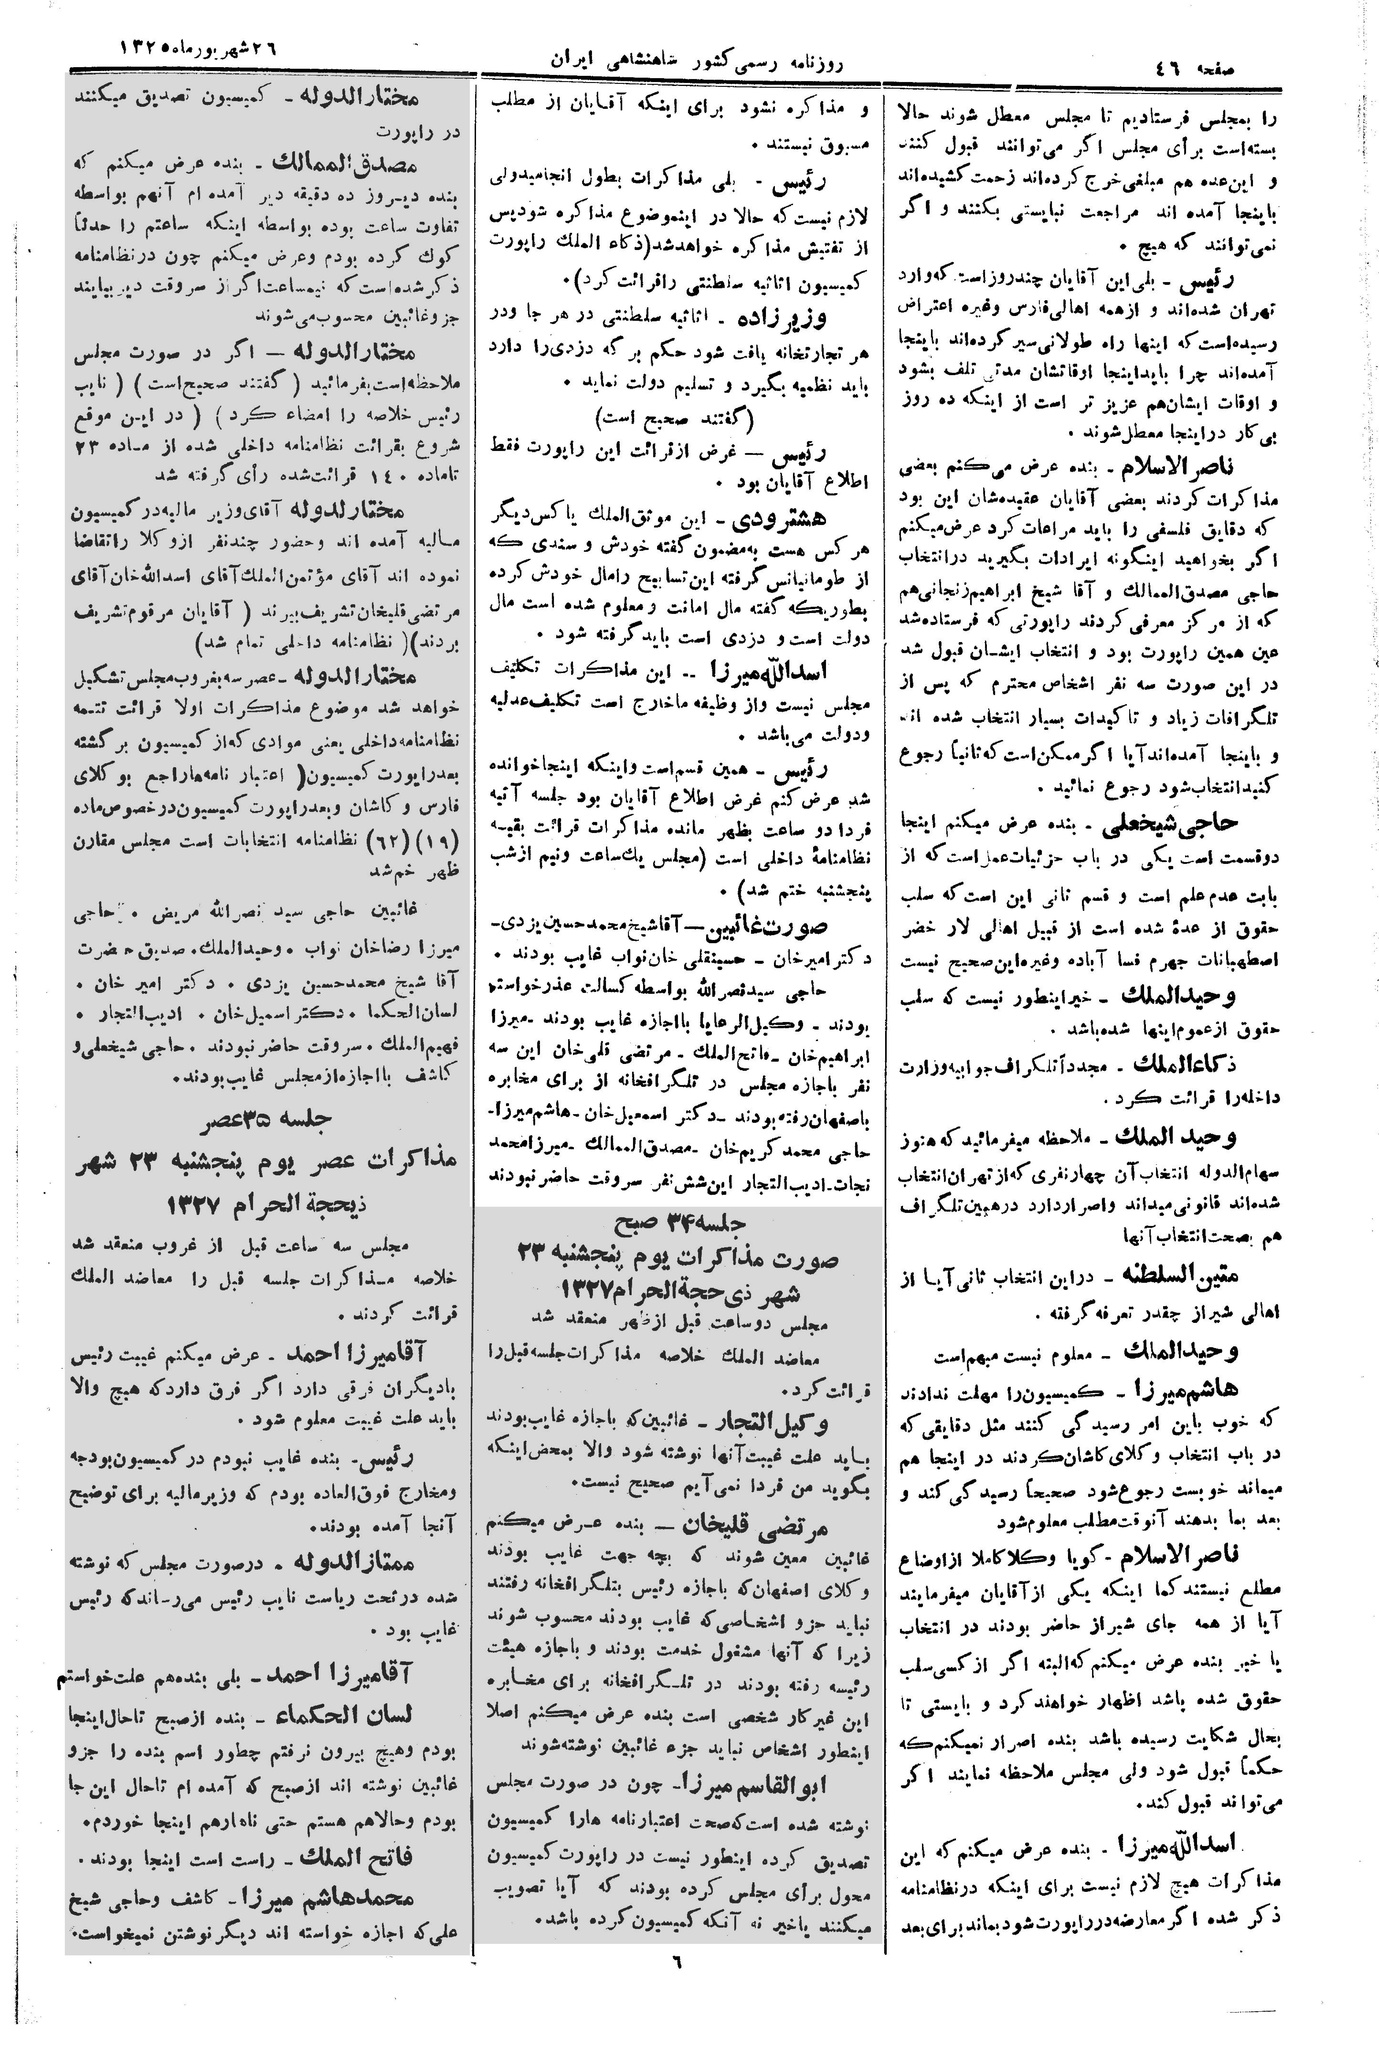 صفحه ٤٦
روزنامه رسمی کشور شاهنشاهی ایران
٢٦ شهریور ماه ١٣٢٥
را بمجلس فرستادیم تا مجلس معطل شوند حالا
بسته‌است برأی مجلس اگر می‌توانند قبول کنند
و این‌عده هم مبلغی خرج کرده‌اند زحمت کشیده‌اند
باینجا آمده اند مراجعت نبایستی بکنند و اگر
نمی‌توانند که هیچ .
رئیس - بلی این آقایان چندروزاست که وارد
تهران شده‌اند و از همه اهالی فارس وغیره اعتراض
رسیده‌است که اینها راه طولانی سیر کرده‌اند باینجا
آمده‌اند چرا باید اینجا اوقاتشان مدتی تلف بشود
و اوقات ایشان‌هم عزیز تر است از اینکه ده روز
بی‌کار دراینجا معطل‌شوند .
ناصر الاسلام - بنده عرض می‌کنم بعضی
مذاکرات کردند بعضی آقایان عقیده‌شان این بود
که دقایق فلسفی را باید مراعات کرد عرض میکنم
اگر بخواهید اینگونه ایرادات بگیرید درانتخاب
حاجی مصدق‌الممالک و آقا شیخ ابراهیم زنجانی‌هم
که از مرکز معرفی کردند راپورتی که فرستاده‌شد
عین همین راپورت بود و انتخاب ایشان قبول شد
در این صورت سه نفر اشخاص محترم که پس از
تلگرافات زیاد و تاکیدات بسیار انتخاب شده اند
و باینجا آمده‌اند آیا اگر ممکن‌است که ثانیاً رجوع
کنید انتخاب‌شود رجوع نمائید .
حاجی شیخعلی - بنده عرض میکنم اینجا
دوقسمت است یکی در باب جزئیات عمل‌است که از
بابت عدم علم است و قسم ثانی این است که سلب
حقوق از عدهٔ شده است از قبیل اهالی لار خضر
اصطهبانات جهرم فسا آباده وغیره این صحیح نیست
وحیدالملک - خیر اینطور نیست که سلب
حقوق از عموم اینها شده‌باشد .
ذکاءالملک - مجدداً تلگراف جوابیه وزارت
داخله‌را قرائت کرد .
وحیدالملک - ملاحظه میفرمائید که هنوز
سهام‌الدوله انتخاب آن چهار نفری که از تهران انتخاب
شده‌اند قانونی میداند واصرار دارد درهمین تلگراف
هم بصحت انتخاب آنها
متین السلطنه - دراین انتخاب ثانی آیا از
اهالی شیراز چقدر تعرفه گرفته .
وحیدالملک - معلوم نیست مبهم‌است
هاشم میرزا - کمیسیون را مهلت ندادند
که خوب باین امر رسیدگی کنند مثل دقایقی که
در باب انتخاب وکلای کاشان کردند در اینجا هم
میماند خوبست رجوع شود صحیحاً رسیدگی کند و
بعد بما بدهند آنوقت مطلب معلوم‌شود
ناصر الاسلام - گویا وکلا کاملا از اوضاع
مطلع نیستند کما اینکه یکی از آقایان میفرمایند
آیا از همه جای شیراز حاضر بودند در انتخاب
یا خیر بنده عرض میکنم که البته اگر از کسی سلب
حقوق شده باشد اظهار خواهند کرد و بایستی تا
بحال شکایت رسیده باشد بنده اصرار نمیکنم که
حکماً قبول شود ولی مجلس ملاحظه نمایند اگر
می‌تواند قبول کند.
اسدالله میرزا - بنده عرض میکنم که این
مذاکرات هیچ لازم نیست برای اینکه درنظامنامه
ذکر شده اگر معارضه در راپورت شود بماند برای بعد
و مذاکره نشود برای اینکه آقایان از مطلب
مسبوق نیستند .
رئیس - بلی مذاکرات بطول انجامیدولی
لازم نیست که حالا در اینموضوع مذاکره شودپس
از تفتیش مذاکره خواهدشد(ذکاء الملک راپورت
کمیسیون اثاثیه سلطنتی راقرائت کرد).
وزیرزاده - اثاثیه سلطنتی در هر جا ودر
هر تجارتخانه یافت شود حکم بر که دزدی‌را دارد
باید نظمیه بگیرد و تسلیم دولت نماید .
(گفتند صحیح است)
رئیس — غرض ازقرائت این راپورت فقط
اطلاع آقایان بود .
هشترودی - این موثق‌الملک یا کس‌دیگر
هر کس هست به‌مضمون گفته خودش و سندی که
از طومانیانس گرفته این تسابیح رامال خودش کرده
بطوریکه گفته مال امانت و معلوم شده است مال
دولت است و دزدی است باید گرفته شود .
اسدالله میرزا - این مذاکرات تکلیف
مجلس نیست واز وظیفه ماخارج است تکلیف عدلیه
ودولت می‌باشد .
رئیس - همین قسم‌است واینکه اینجاخوانده
شد عرض کنم غرض اطلاع آقایان بود جلسه آتیه
فردا دو ساعت بظهر مانده مذاکرات قرائت بقیه
نظامنامهٔ داخلی است (مجلس یك‌ساعت ونیم ازشب
پنجشنبه ختم شد) .
صورت غائبین — آقاشیخ محمدحسین یزدی-
دکتر امیرخان - حسینقلی خان نواب غایب بودند .
حاجی سیدنصرالله بواسطه کسالت عذر خواسته
بودند - وکیل الرعایا بااجازه غایب بودند - میرزا
ابراهیم خان - فاتح الملک - مرتضی قلی خان این سه
نفر باجازه مجلس در تلگرافخانه از برای مخابره
باصفهان رفته بودند - دکتر اسمعیل خان - هاشم میرزا-
حاجی محمد کریم خان - مصدق الممالک - میرزا محمد
نجات-ادیب التجار این شش نفر سروقت حاضر نبودند
جلسه ۳۴ صبح
صورت مذاکرات یوم پنجشنبه ۲۳
شهر ذی حجة الحرام ۱۳۲۷
مجلس دوساعت قبل ازظهر منعقد شد
معاضد الملک خلاصه مذاکرات جلسه قبل را
قرائت کرد.
وکیل التجار - غائبین که باجازه غایب بودند
باید علت غیبت آنها نوشته شود والا بمحض اینکه
بگوید من فردا نمی‌آیم صحیح نیست.
مرتضی قلیخان — بنده عرض میکنم
غائبین معین شوند که بچه جهت غایب بودند
و کلای اصفهان که باجازه رئیس بتلگرافخانه رفتند
نباید جزو اشخاصی که غایب بودند محسوب شوند
زیرا که آنها مشغول خدمت بودند و باجازه هیئت
رئیسه رفته بودند در تلگرافخانه برای مخابره
این غیر کار شخصی است بنده عرض میکنم اصلا
اینطور اشخاص نباید جزء غائبین نوشته‌شوند
ابوالقاسم میرزا - چون در صورت مجلس
نوشته شده است که صحت اعتبارنامه هارا کمیسیون
تصدیق کرده اینطور نیست در راپورت کمیسیون
محول برأی مجلس کرده بودند که آیا تصویب
میکنند یاخیر نه آنکه کمیسیون کرده باشد.
مختارالدوله - کمیسیون تصدیق میکنند
در راپورت
مصدق الممالک - بنده عرض میکنم که
بنده دیروز ده دقیقه دیر آمده ام آنهم بواسطه
تفاوت ساعت بوده بواسطه اینکه ساعتم را حدثاً
کوك کرده بودم وعرض میکنم چون درنظامنامه
ذکر شده‌است که نیمساعت اگر از سروقت دیر بیایند
جزوغائبین محسوب می‌شوند
مختارالدوله — اگر در صورت مجلس
ملاحظه‌است بفرمائید ( گفتند صحیح‌است ) ( نایب
رئیس خلاصه را امضاء کرد ) ( در این موقع
شروع بقرائت نظامنامه داخلی شده از ماده ۲۳
تاماده ۱٤۰ قرائت‌شده رأی گرفته شد
مختارلدوله آقای وزیر مالیه در کمیسیون
مالیه آمده اند وحضور چندنفر ازوکلا راتقاضا
نموده اند آقای مؤتمن الملک آقای اسدالله خان آقای
مرتضی قلیخان تشریف ببرند ( آقایان مرقوم تشریف
بردند)( نظامنامه داخلی تمام شد)
مختارالدوله - عصر سه بغروب مجلس تشکیل
خواهد شد موضوع مذاکرات اولا قرائت تتمه
نظامنامه داخلی یعنی موادی که از کمیسیون برگشته
بعد راپورت کمیسیون( اعتبار نامه‌ها راجع بوکلای
فارس و کاشان وبعد راپورت کمیسیون در خصوص ماده
(۱۹) (٦۲) نظامنامه انتخابات است مجلس مقارن
ظهر ختم شد
غائبین حاجی سید نصرالله مریض . حاجی
میرزا رضاخان نواب . وحیدالملک. صدیق حضرت
آقا شیخ محمدحسین یزدی . دکتر امیر خان .
لسان الحکما . دکتر اسمیل خان . ادیب التجار .
فهیم الملک . سروقت حاضر نبودند . حاجی شیخعلی و
کاشف بااجازه ازمجلس غایب بودند.
جلسه ۳۵ عصر
مذاکرات عصر یوم پنجشنبه ۲۳ شهر
ذیحجة الحرام ۱۳۲۷
مجلس سه ساعت قبل از غروب منعقد شد
خلاصه مذاکرات جلسه قبل را معاضد الملک
قرائت کردند .
آقامیرزا احمد - عرض میکنم غیبت رئیس
بادیگران فرقی دارد اگر فرق داردکه هیچ والا
باید علت غیبت معلوم شود .
رئیس- بنده غایب نبودم در کمیسیون بودجه
ومخارج فوق‌العاده بودم که وزیر مالیه برای توضیح
آنجا آمده بودند.
ممتازالدوله . درصورت مجلس که نوشته
شده درتحت ریاست نایب رئیس می‌رساندکه رئیس
غایب بود .
آقامیرزا احمد - بلی بنده‌هم علت خواستم
لسان الحکماء - بنده ازصبح تاحال اینجا
بودم وهیچ بیرون نرفتم چطور اسم بنده را جزو
غائبین نوشته اند ازصبح که آمده ام تاحال این جا
بودم وحالاهم هستم حتی ناهارهم اینجا خوردم.
فاتح الملک - راست است اینجا بودند .
محمدهاشم میرزا- کاشف وحاجی شیخ
علی که اجازه خواسته اند دیگر نوشتن نمیخواست.
٦